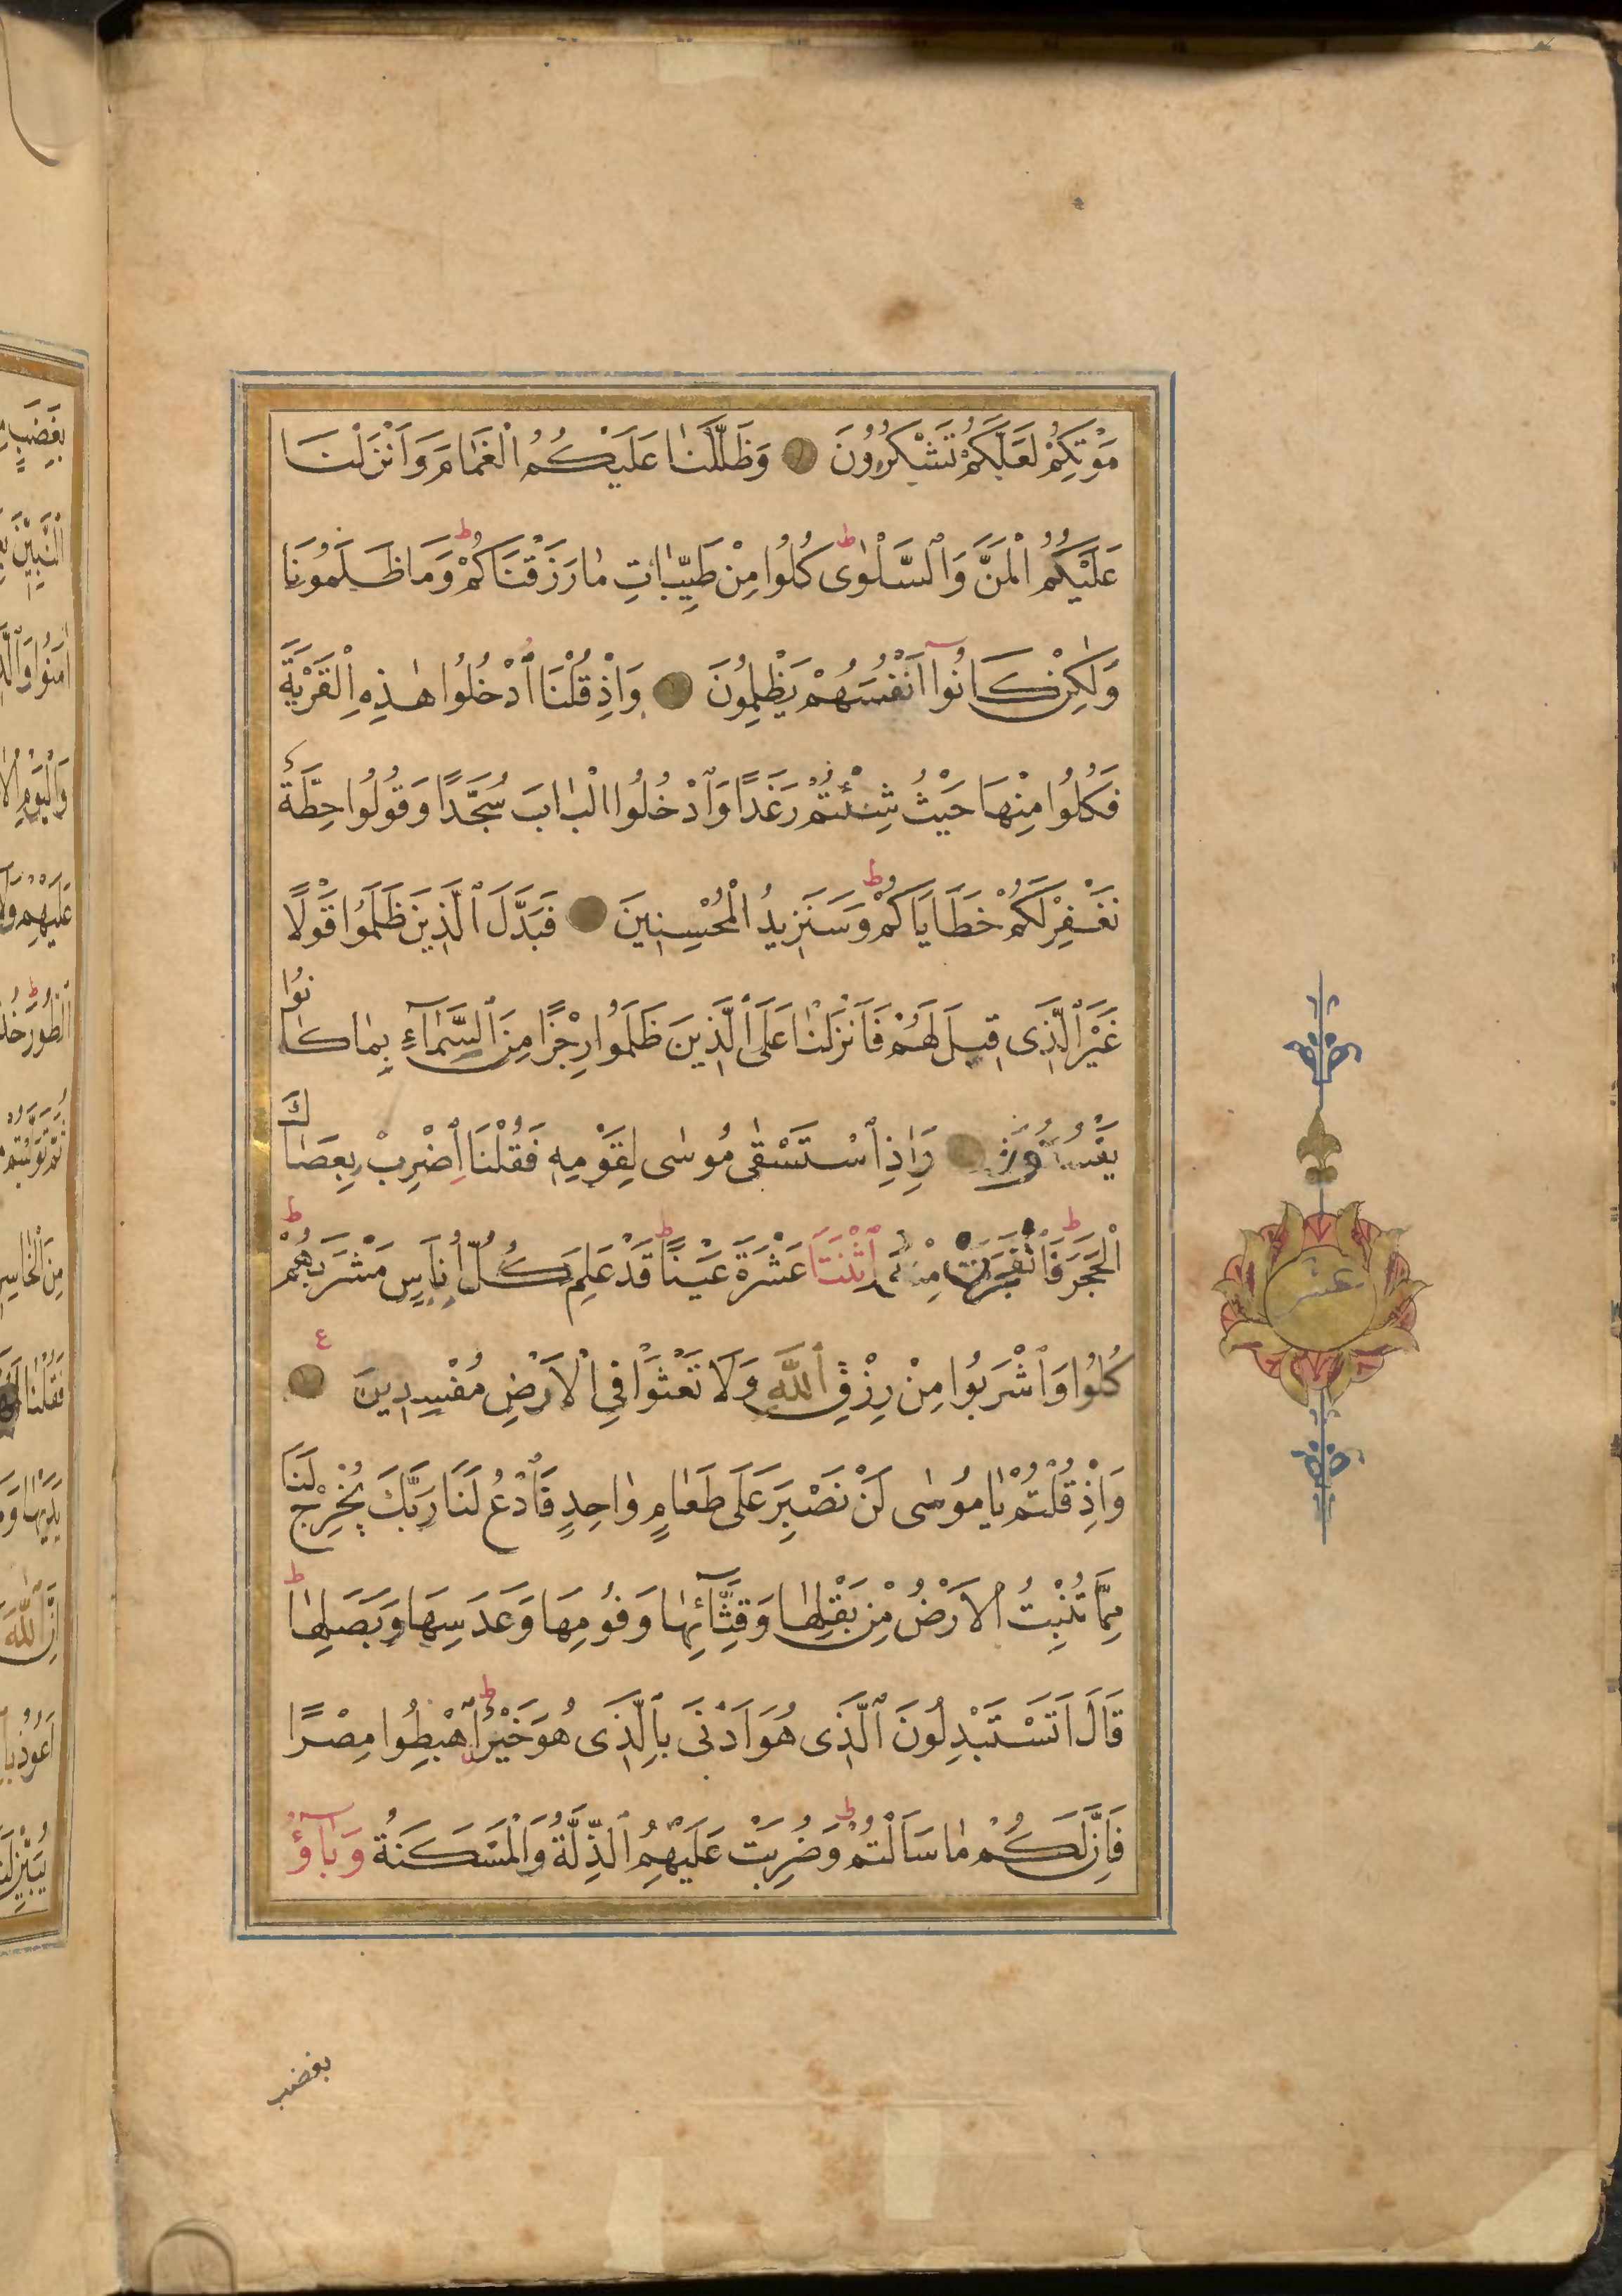 مَوْتِكُمْ لَعَلَّكُمْ تَشْكُرُونَ وَظَلَّلْنَا عَلَيْكُمُ الْغَمَامَ وَاَنْزَلْنَا
عَلَيْكُمُ الْمَنَّ وَالسَّلْوٰى ط كُلُوا مِنْ طَيِّبَاتِ مَا رَزَقْنَاكُمْ ط وَمَا ظَلَمُونَا
وَلٰكِنْ كَانُوا اَنْفُسَهُمْ يَظْلِمُونَ وَاِذْ قُلْنَا ادْخُلُوا هٰذِهِ الْقَرْيَةَ
فَكُلُوا مِنْهَا حَيْثُ شِئْتُمْ رَغَدًا وَادْخُلُوا الْبَابَ سُجَّدًا وَقُولُوا حِطَّةٌ
نَغْفِرْ لَكُمْ خَطَايَاكُمْ ط وَسَنَزِيدُ الْمُحْسِنِينَ فَبَدَّلَ الَّذِينَ ظَلَمُوا قَوْلًا
غَيْرَ الَّذِى قِيلَ لَهُمْ فَاَنْزَلْنَا عَلَى الَّذِينَ ظَلَمُوا رِجْزًا مِنَ السَّمَآءِ بِمَا كَانُوا
يَفْسُقُونَ وَاِذِ اسْتَسْقٰى مُوسٰى لِقَوْمِهِ فَقُلْنَا اضْرِبْ بِعَصَاكَ
الْحَجَرَ ط فَانْفَجَرَتْ مِنْهُ اثْنَتَا عَشْرَةَ عَيْنًا ط قَدْ عَلِمَ كُلُّ اُنَاسٍ مَشْرَبَهُمْ ط
كُلُوا وَاشْرَبُوا مِنْ رِزْقِ اللّٰهِ وَلَا تَعْثَوْا فِى الْاَرْضِ مُفْسِدِينَ ع
وَاِذْ قُلْتُمْ يَا مُوسٰى لَنْ نَصْبِرَ عَلٰى طَعَامٍ وَاحِدٍ فَادْعُ لَنَا رَبَّكَ يُخْرِجْ لَنَا
مِمَّا تُنْبِتُ الْاَرْضُ مِنْ بَقْلِهَا وَقِثَّآئِهَا وَفُومِهَا وَعَدَسِهَا وَبَصَلِهَا ط
قَالَ اَتَسْتَبْدِلُونَ الَّذِى هُوَ اَدْنٰى بِالَّذِى هُوَ خَيْرٌ ط اهْبِطُوا مِصْرًا
فَاِنَّ لَكُمْ مَا سَاَلْتُمْ ط وَضُرِبَتْ عَلَيْهِمُ الذِّلَّةُ وَالْمَسْكَنَةُ وَبَآؤُ
بغضب
عشر